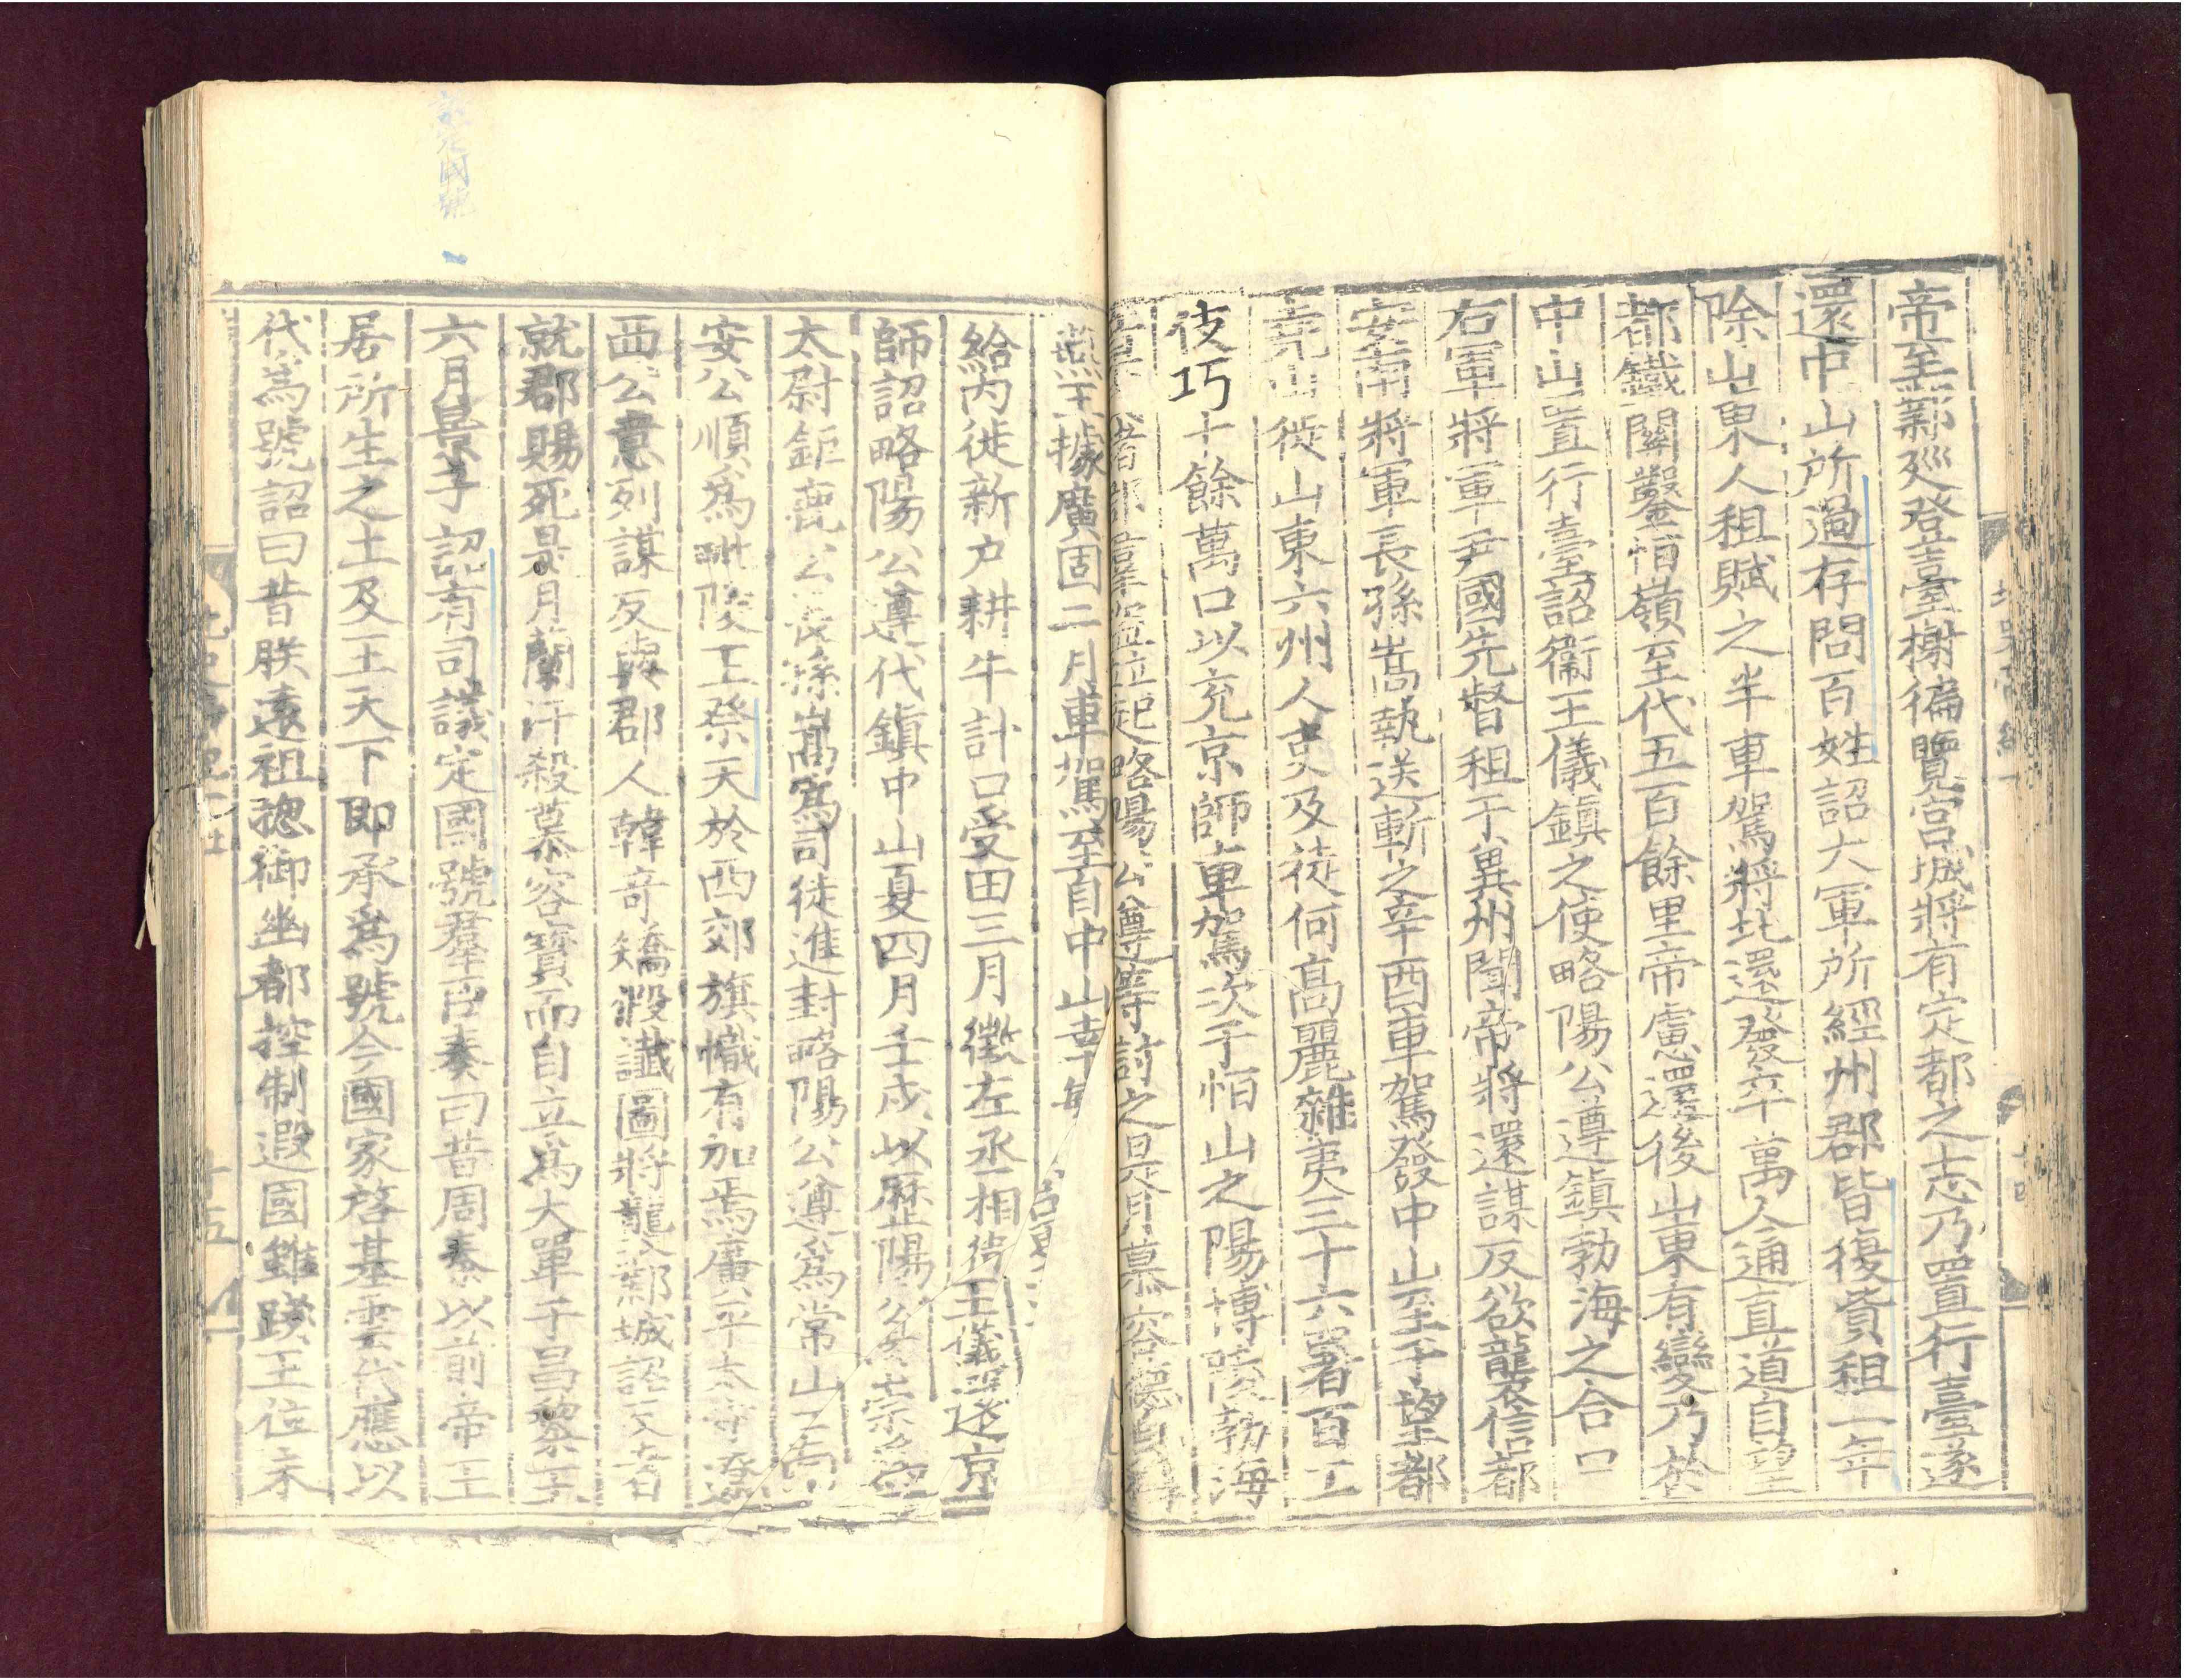 帝至鄴巡登臺榭徧覽宮城將有定都之志乃置行臺遂
還中山所過存問百姓詔大軍所經州郡皆復貲租一年
除山東人租賦之半車駕將北還發卒萬人通直道自望
都鐵關鑿恒嶺至代五百餘里帝慮還後山東有變乃於
中山置行臺詔衞王儀鎮之使略陽公遵鎮勃海之合口
右軍將軍尹國先督租于冀州聞帝將還謀反欲襲信都
安南將軍長孫嵩執送斬之辛酉車駕發中山至于望都
堯山徙山東六州人吏及徒何高麗雜夷三十六署百工
伎巧十餘萬口以充京師車駕次于恒山之陽博陵勃海
諸郡羣盜並起略陽公遵等討之是月慕容德自
燕王據廣固二月車駕至自中山幸
給內徙新户耕牛計口受田三月徵左丞相衞王儀還京
師詔略陽公遵代鎮中山夏四月壬戌以歷陽公 崇爲
太尉鉅鹿公長孫嵩爲司徒進封略陽公遵爲常山王南
安公順爲毗陵王祭天於西郊旗幟有加焉廣平太守遼
西公意列謀反與郡人韓奇矯假讖圖將襲鄴城詔反者
就郡賜死是月蘭汗殺慕容寶而自立爲大單于昌黎王
六月景子詔有司議定國號羣臣奏曰昔周秦以前帝王
居所生之土及王天下即承爲號今國家啓基雲代應以
代爲號詔曰昔朕遠祖揔御幽都控制遐國雖踐王位未
十五
議定國號